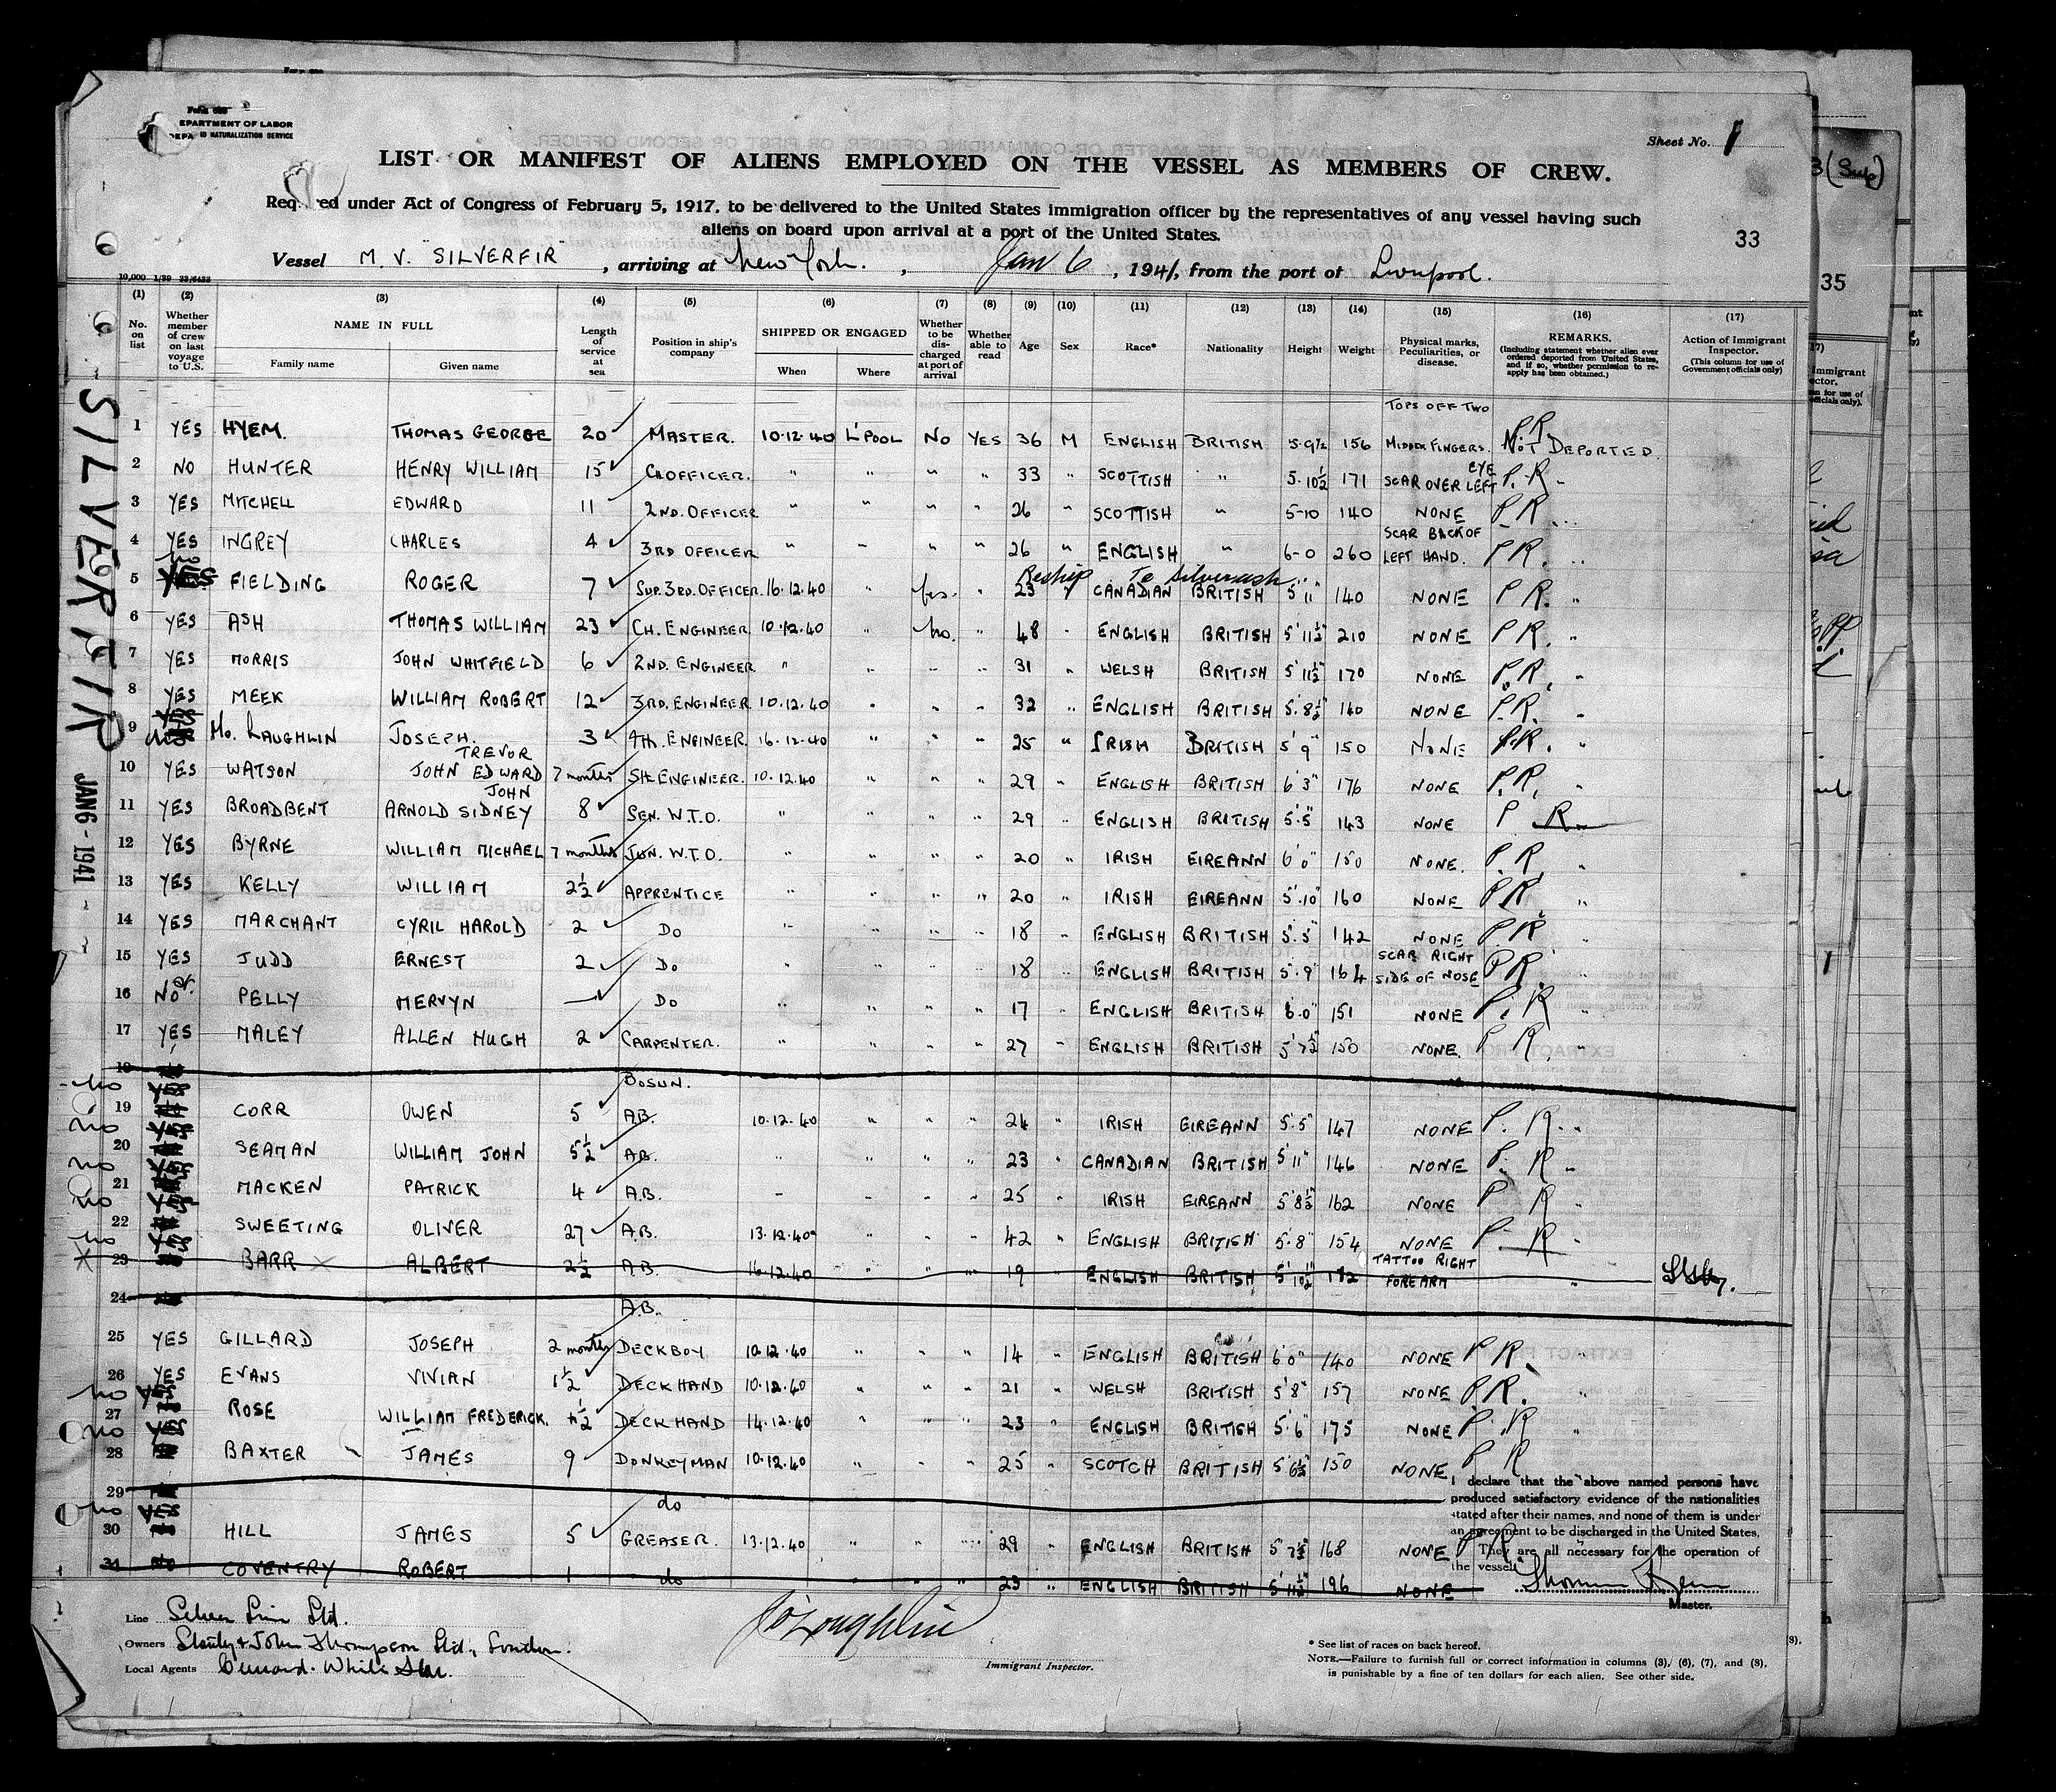 Form 689
DEPARTMENT OF LABOR
NATURALIZATION SERVICE
Sheet No. 1
LIST OR MANIFEST OF ALIENS EMPLOYED ON THE VESSEL AS MEMBERS OF CREW.
Required under Act of Congress of February 5, 1917, to be delivered to the United States immigration officer by the representatives of any vessel having such
aliens on board upon arrival at a port of the United States.
33
Vessel M. V. "SILVERFIR", arriving at New York., Jan 6, 1941, from the port of Liverpool.
(1) (2) (3) (4) (5) (6) (7) (8) (9) (10) (11) (12) (13) (14) (15) (16) (17)
No. on list
Whether member of crew on last voyage to U.S.
NAME IN FULL
Family name Given name
Length of service at sea
Position in ship's company
SHIPPED OR ENGAGED
When Where
Whether to be discharged at port of arrival
Whether able to read
Age Sex Race* Nationality Height Weight
Physical marks, Peculiarities, or disease.
REMARKS.
(Including statement whether alien ever ordered deported from United States, and if so, whether permission to reapply has been obtained.)
Action of Immigrant Inspector.
(This column for use of Government officials only)
SILVERFIR
JAN 6 - 1941
1 YES HYEM. THOMAS GEORGE 20 MASTER. 10.12.40 L'POOL NO YES 36 M ENGLISH BRITISH 5.9½ 156 TOPS OFF TWO MIDDLE FINGERS. P.R NOT DEPORTED.
2 NO HUNTER HENRY WILLIAM 15 C.OFFICER. " " " " 33 " SCOTTISH " 5.10½ 171 SCAR OVER LEFT EYE P.R "
3 YES MITCHELL EDWARD 11 2ND. OFFICER " " " " 26 " SCOTTISH " 5-10 140 NONE P R "
4 YES INGREY CHARLES 4 3RD OFFICER " " " " 26 " ENGLISH " 6-0 260 SCAR BACK OF LEFT HAND. P R. "
Reship To Silverash
5 no YES FIELDING ROGER 7 SUP. 3RD. OFFICER 16.12.40 " Yes. " 23 " CANADIAN BRITISH 5'11" 140 NONE P R. "
6 YES ASH THOMAS WILLIAM 23 CH. ENGINEER 10.12.40 " No. " 48 " ENGLISH BRITISH 5'11½" 210 NONE P R. "
7 YES MORRIS JOHN WHITFIELD 6 2ND. ENGINEER " " " " 31 " WELSH BRITISH 5'11½" 170 NONE P.R. "
8 YES MEEK WILLIAM ROBERT 12 3RD. ENGINEER 10.12.40 " " " 32 " ENGLISH BRITISH 5.8½" 140 NONE P.R. "
9 YES Mc. LAUGHLIN JOSEPH. 3 4TH. ENGINEER 16.12.40 " " " 25 " IRISH BRITISH 5'9" 150 NONE P.R. "
10 YES WATSON JOHN EDWARD TREVOR 7 months 5th ENGINEER. 10.12.40 " " " 29 " ENGLISH BRITISH 6'3" 176 NONE P.R. "
11 YES BROADBENT ARNOLD SIDNEY JOHN 8 SEN. W.T.O. " " " " 29 " ENGLISH BRITISH 5'5" 143 NONE P R
12 YES BYRNE WILLIAM MICHAEL 7 months JUN. W.T.O. " " " " 20 " IRISH EIREANN 6'0" 150 NONE. P.R. "
13 YES KELLY WILLIAM 2½ APPRENTICE " " " " 20 " IRISH EIREANN 5'10" 160 NONE P.R. "
14 YES MARCHANT CYRIL HAROLD 2 DO " " " " 18 " ENGLISH BRITISH 5'5" 142 NONE P.R "
15 YES JUDD ERNEST 2 DO " " " " 18 " ENGLISH BRITISH 5'9" 164 SCAR RIGHT SIDE OF NOSE P R. "
16 NO PELLY MERVYN — DO " " " " 17 " ENGLISH BRITISH 6.0" 151 NONE P. R "
17 YES MALEY ALLEN HUGH 2 CARPENTER. " " " " 27 " ENGLISH BRITISH 5'7½ 150 NONE. P R. "
18 BOSUN.
19 no YES CORR OWEN 5 A.B. 10.12.40 " " " 24 " IRISH EIREANN 5.5" 147 NONE P. R. "
20 no YES SEAMAN WILLIAM JOHN 5½ AB. " " " " 23 " CANADIAN BRITISH 5'11" 146 NONE P. R "
21 no YES MACKEN PATRICK 4 A.B. " " " " 25 " IRISH EIREANN 5'8½" 162 NONE P R "
22 no YES SWEETING OLIVER 27 A.B. 13.12.40 " " " 42 " ENGLISH BRITISH 5.8" 154 NONE P R "
23 no YES BARR ALBERT 2½ A.B. 16.12.40 " " " 19 " ENGLISH BRITISH 5'10½" 182 TATTOO RIGHT FOREARM "
24 A.B.
25 YES GILLARD JOSEPH 2 months DECKBOY 10.12.40 " " " 14 " ENGLISH BRITISH 6'0" 140 NONE P R. "
26 YES EVANS VIVIAN 1½ DECK HAND 10.12.40 " " " 21 " WELSH BRITISH 5'8" 157 NONE P.R. "
27 no YES ROSE WILLIAM FREDERICK. ½ DECK HAND 14.12.40 " " " 23 " ENGLISH BRITISH 5'6" 175 NONE P.R "
28 no YES BAXTER JAMES 9 DONKEYMAN 10.12.40 " " " 25 " SCOTCH BRITISH 5'6½" 150 NONE P R
29 do
30 no YES HILL JAMES 5 GREASER. 13.12.40 " " " 29 " ENGLISH BRITISH 5'7½" 168 NONE P R
31 COVENTRY ROBERT 1 do " " " 23 " ENGLISH BRITISH 5'11½" 196 NONE
I declare that the above named persons have
produced satisfactory evidence of the nationalities
stated after their names, and none of them is under
an agreement to be discharged in the United States,
They are all necessary for the operation of
the vessel.
Thomas Hyem
Master.
Line Silver Line Ltd.
Owners Stanley & John Thompson Ltd., London.
Local Agents Cunard. White Star.
J O'Loughlin
Immigrant Inspector.
* See list of races on back hereof.
NOTE.—Failure to furnish full or correct information in columns (3), (6), (7), and (8),
is punishable by a fine of ten dollars for each alien. See other side.
35